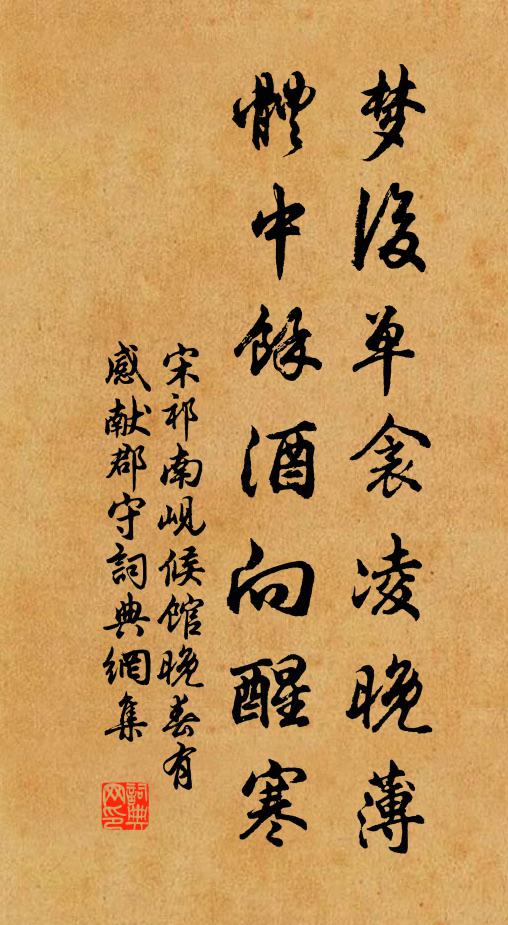 梦後单衾凌晚薄
體中餘酒向醒寒
宋祁南峴候館晚春有
感献郡守詞典網集
詞典网印